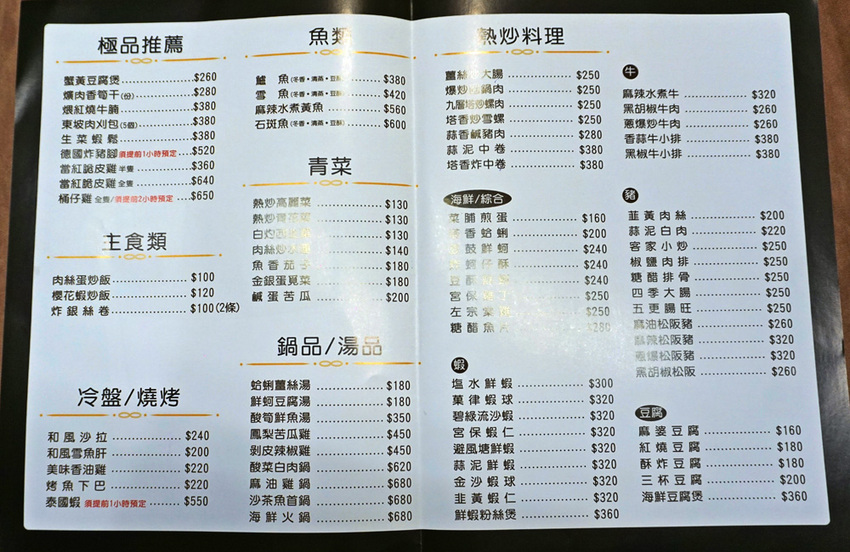 極品推薦
蟹黃豆腐煲 $260
爌肉香筍干(份) $280
煨紅燒牛腩 $380
東坡肉刈包(5個) $380
生菜蝦鬆 $380
德國炸豬腳須提前1小時預定 $520
當紅脆皮雞半隻 $360
當紅脆皮雞全隻 $640
桶仔雞全隻/須提前2小時預定 $650
主食類
肉絲蛋炒飯 $100
櫻花蝦炒飯 $120
炸銀絲卷 $100(2條)
冷盤/燒烤
和風沙拉 $240
和風雪魚肝 $200
美味香油雞 $220
烤魚下巴 $220
泰國蝦須提前1小時預定 $550
魚類
鱸魚(冬香・清蒸・豆酥) $380
雪魚(冬香・清蒸・豆酥) $420
麻辣水煮黃魚 $560
石斑魚(冬香・清蒸・豆酥) $600
青菜
熱炒高麗菜 $130
熱炒 $130
白灼 $130
肉絲炒 $140
魚香茄子 $180
金銀蛋莧菜 $180
鹹蛋苦瓜 $200
鍋品/湯品
蛤蜊薑絲湯 $180
鮮蚵豆腐湯 $180
酸筍鮮魚湯 $350
鳳梨苦瓜雞 $450
剝皮辣椒雞 $450
酸菜白肉鍋 $620
麻油雞鍋 $680
沙茶魚首鍋 $680
海鮮火鍋 $680
熱炒料理
薑絲大腸 $250
爆炒回鍋肉 $250
九層塔炒螺肉 $250
塔香炒雪螺 $250
蒜香鹹豬肉 $280
蒜泥中卷 $380
塔香炸中卷 $380
海鮮/綜合
菜脯煎蛋 $160
香蛤蜊 $200
豉鮮蚵 $240
仔酥 $240
豆酥 $240
宮保 $250
左宗棠 $250
糖醋魚片 $280
蝦
塩水鮮蝦 $300
菓律蝦球 $320
碧綠流沙蝦 $320
宮保蝦仁 $320
避風塘鮮蝦 $320
蒜泥鮮蝦 $320
金沙蝦球 $320
韭黃蝦仁 $320
鮮蝦粉絲煲 $360
牛
麻辣水煮牛 $320
黑胡椒牛肉 $260
蔥爆炒牛肉 $260
香蒜牛小排 $380
黑椒牛小排 $380
豬
韮黃肉絲 $200
蒜泥白肉 $220
客家小炒 $250
椒鹽肉排 $250
糖醋排骨 $250
四季大腸 $250
五更腸旺 $250
麻油松阪豬 $260
麻辣松阪豬 $320
蔥爆松阪豬 $320
黑胡椒松阪 $260
豆腐
麻婆豆腐 $160
紅燒豆腐 $180
酥炸豆腐 $180
三杯豆腐 $200
海鮮豆腐煲 $360